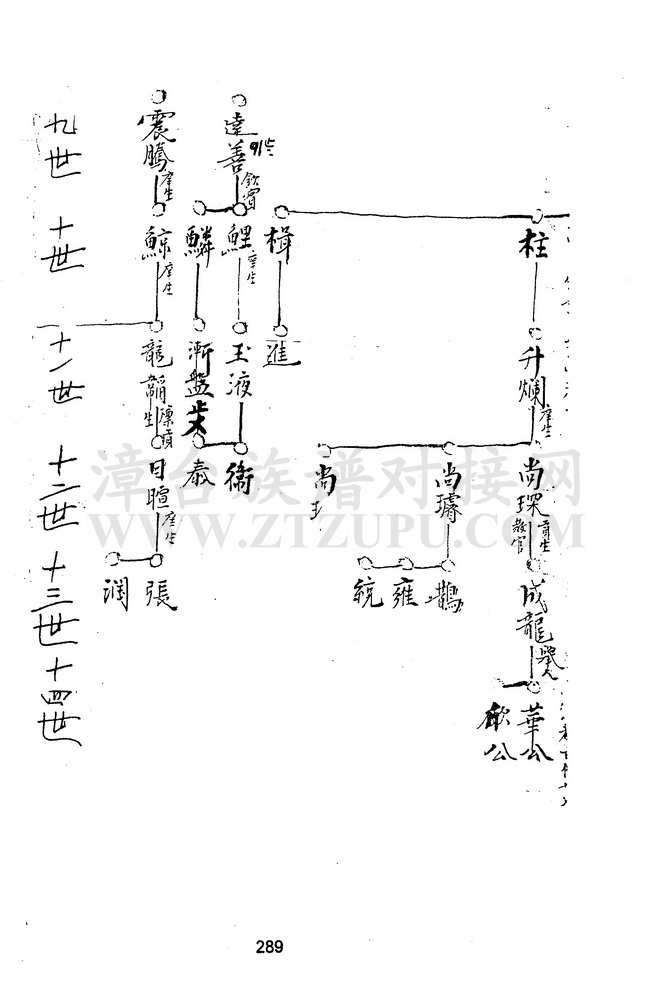 九世
十世
十一世
十二世
十三世
十四世
柱
升爛
庠生
尚琛
貢生
教官
成龍
舉人
華公
歈公
尚璿
鵲
雍
統
尚
楫
進
達善
飲賓
鯉
庠生
玉液
衞
鱗
漸盤
泰
震騰
庠生
鯨
庠生
龍韜
廩貢生
日暄
庠生
張
潤
漳台族谱对接网
WWW.ZTZUPU.COM
289